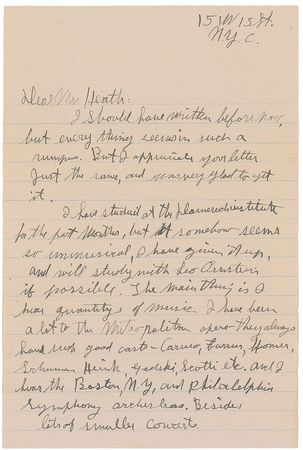 151 W 15 St.
N.Y.C.
Dear Mr Heath:
I should have written before now,
but every thing seems in such a
rumpus. But I appreciate your letter
just the same, and was very glad to get
it.
I have studied at the Damrosch institute
for the past months, but it somehow seems
so unmusical, I have given it up,
and will study with Leo Ornstein
if possible. The main thing is I
hear quantitys of music. I have been
a lot to the Metropolitan opera - They always
have such good casts - Caruso, Farrar, Homer,
Schuman Heink, Scotti etc. and I
hear the Boston, N.Y, and Philadelphia
Symphony orchestras. Besides
lots of smaller concerts.